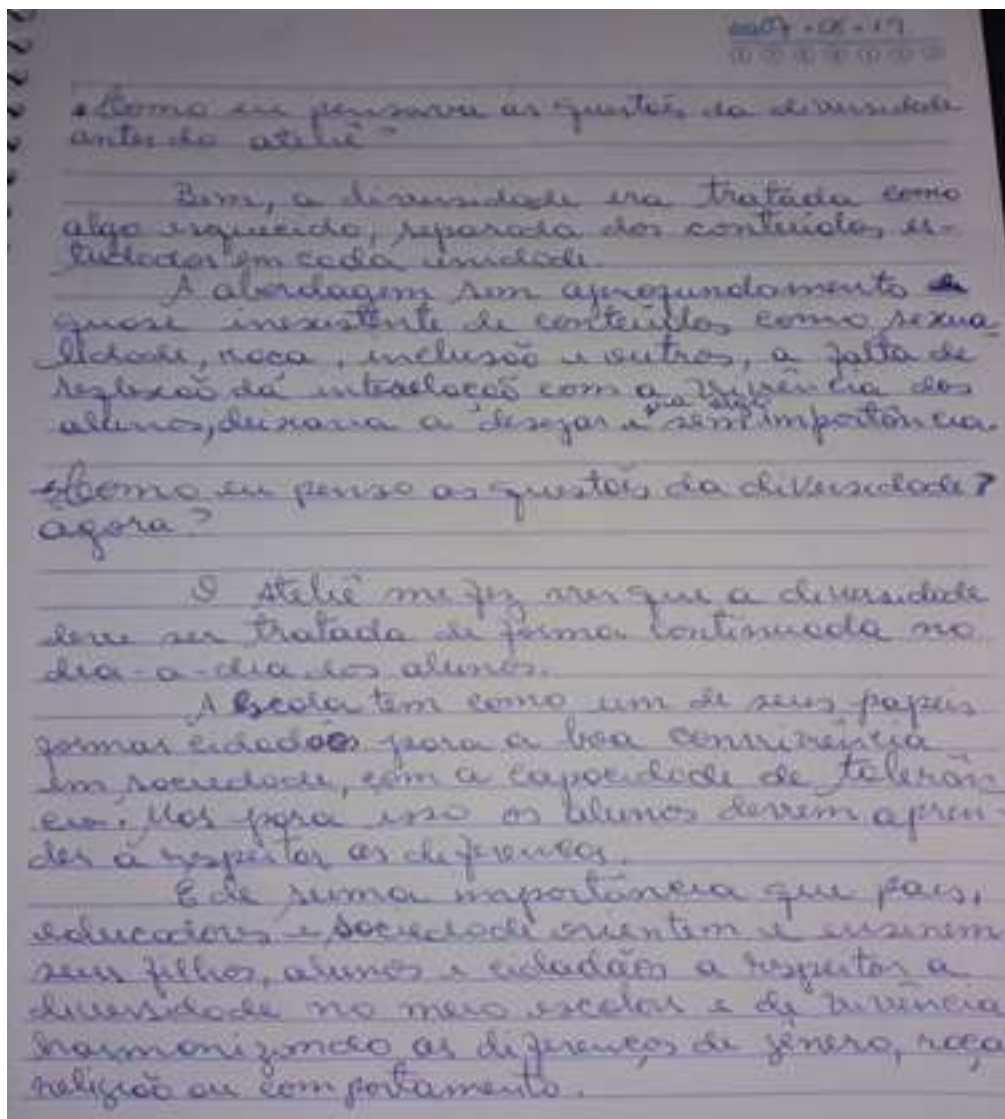 07 - 05 - 19
Como eu pensava as questões da diversidade
antes do ateliê?
Bem, a diversidade era tratada como
algo esquecido, separada dos conteúdos es-
tudados em cada unidade.
A abordagem sem aprofundamento
quase inexistente de conteúdos como sexua
lidade, raça, inclusão e outros, a falta de
reflexão da interelação com a vivência dos
alunos, deixava a desejar e era algo sem importância.
Como eu penso as questões da diversidade?
agora?
O Ateliê me fez ver que a diversidade
deve ser tratada de forma continuada no
dia-a-dia dos alunos.
A Escola tem como um de seus papeis
formar cidadãos para a boa convivência
em sociedade, com a capacidade de tolerân
cia. Mas para isso os alunos devem apren
der a respeitar as diferenças.
É de suma importância que pais,
educadores e sociedade orientem e ensinem
seus filhos, alunos e cidadãos a respeitar a
diversidade no meio escolar e de vivência
harmonizando as diferenças de gênero, raça
religião ou comportamento.